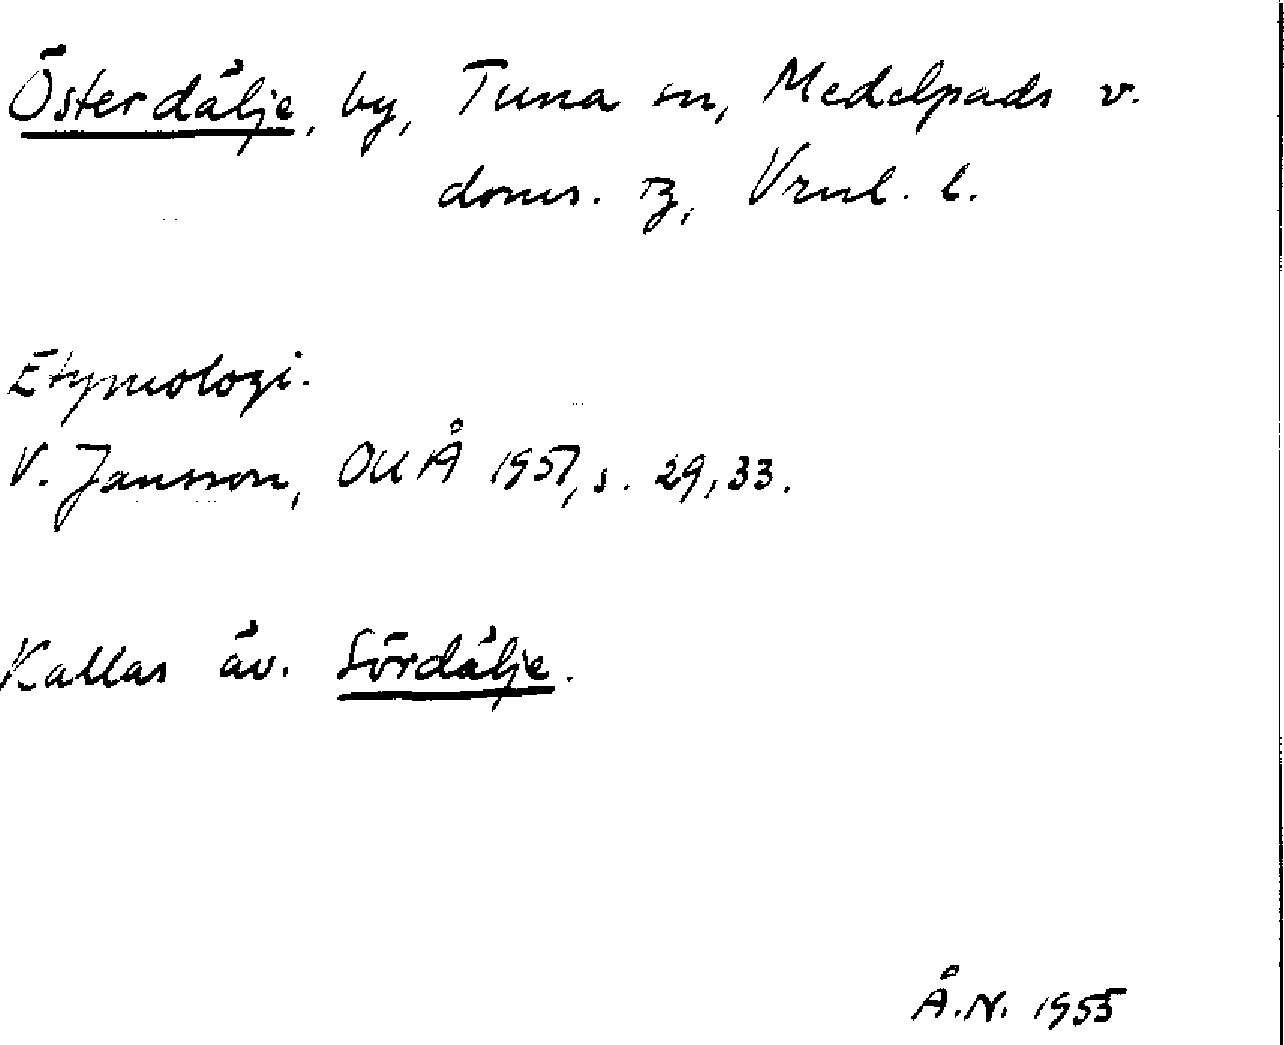 Österdälje, by, Tuna sn, Medelpads v.
doms. tg, Vrnl. l.
Etymologi.
V. Jansson, OUÅ 1951, s. 29, 33.
Kallas äv. Sördälje.
Å.N. 1955